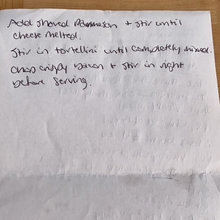 Add shaved Parmesan + stir until
cheese melted.
Stir in tortellini until completely mixed.
Chop crispy bacon + stir in right
before serving.